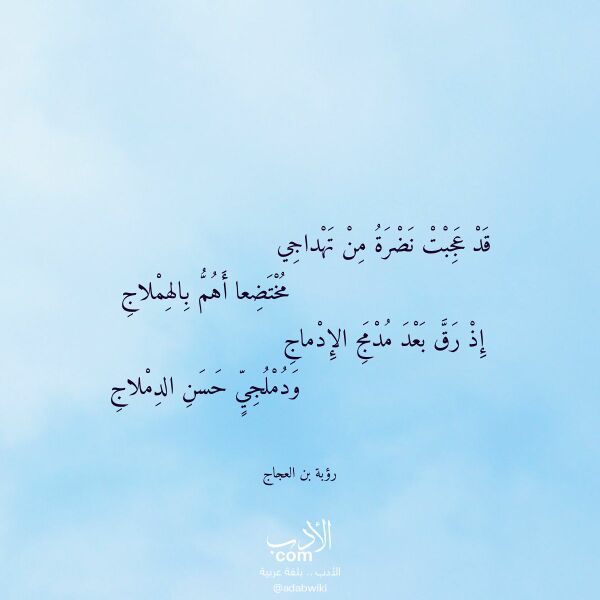 قَدْ عَجِبْتْ نَضْرَةُ مِنْ تَهْداجِي
مُخْتَضِعا أَهُمُّ بِالهِمْلاجِ
إِذْ رَقَّ بَعْدَ مُدْمَجِ الإِدْماجِ
وَدُمْلُجِيٍّ حَسَنِ الدِمْلاجِ
رؤبة بن العجاج
الأدب
com
الأدب .. بلغة عربية
@adabwiki